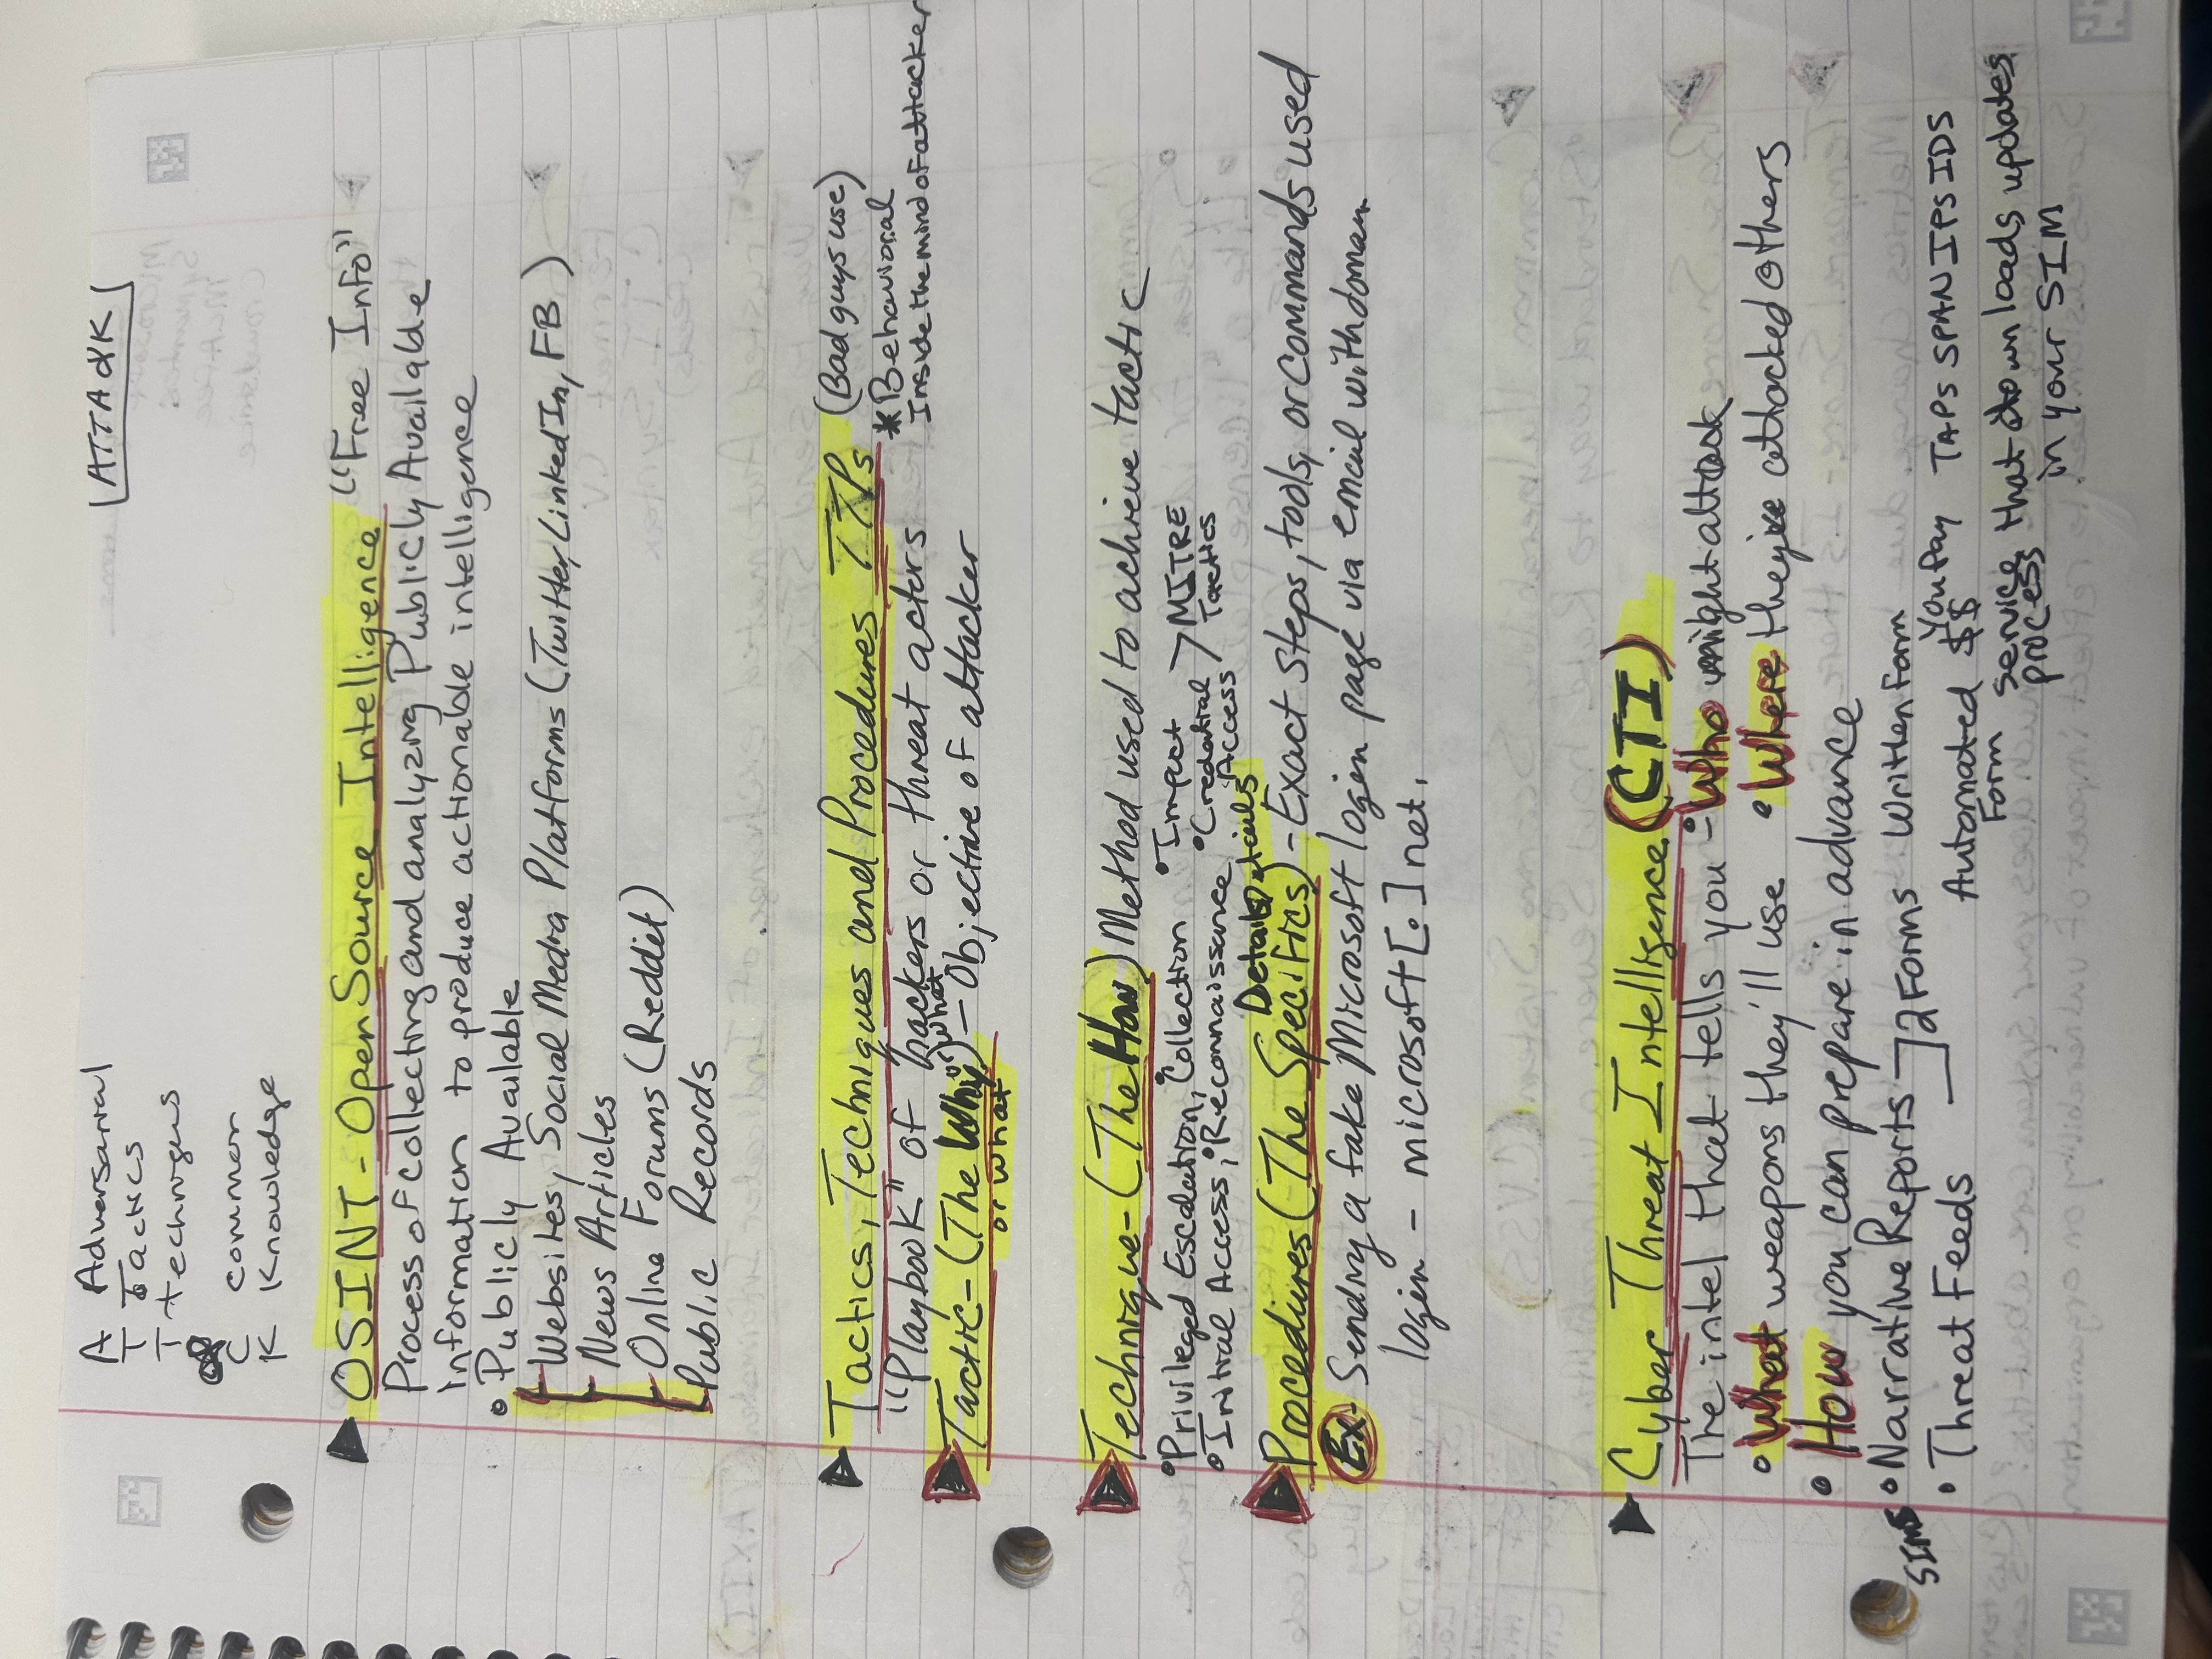 A Adversarial
ATTA&K
T Tactics
T techniques
&
C common
K Knowledge
OSINT - Open Source Intelligence "Free Info"
Process of collecting and analyzing Publicly Available
information to produce actionable intelligence
• Publicly Available
- Websites, Social Media Platforms (Twitter, LinkedIn, FB)
- News Articles
- Online Forums (Reddit)
- Public Records
Tactics, Techniques and Procedures TTPs (Bad guys use)
"Playbook" of hackers or threat actors * Behavioral
Inside the mind of attacker
Tactic - (The Why or what) - Objective of attacker
or what
Technique - (The How) Method used to achieve tactic
• Privileged Escalation, • Collection • Impact
• Initial Access, • Reconnaissance • Credential Access > MITRE Tactics
Details Details
Procedures (The Specifics) - Exact Steps, tools, or commands used
Ex - Sending a fake Microsoft login page via email with domain
login - microsoft[.]net.
Cyber Threat Intelligence (CTI)
The intel that tells you - • Who might attack
• What weapons they'll use • Where they've attacked others
• How you can prepare in advance
SIMS • Narrative Reports ] 2 Forms Written Form
• Threat Feeds
Automated Form You Pay $$ TAPS SPAN IPS IDS
service process that downloads updates
in your SIM